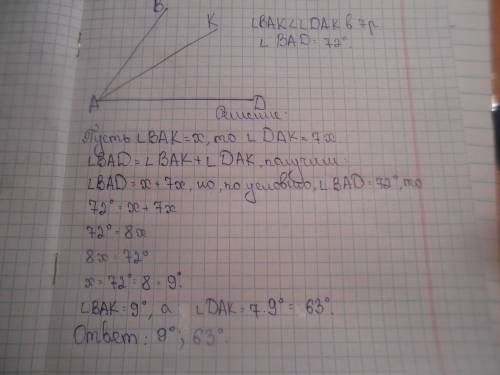 B
K
∠BAK<∠DAK в 7р
∠BAD=72°.
A
D
Решение:
Пусть ∠BAK=x, то ∠DAK=7x
∠BAD=∠BAK+∠DAK, получим:
∠BAD=x+7x, но, по условию, ∠BAD=72°, то
72°=x+7x
72°=8x
8x=72°
x=72°:8=9°.
∠BAK=9°, а ∠DAK=7·9°=63°.
Ответ: 9°; 63°.